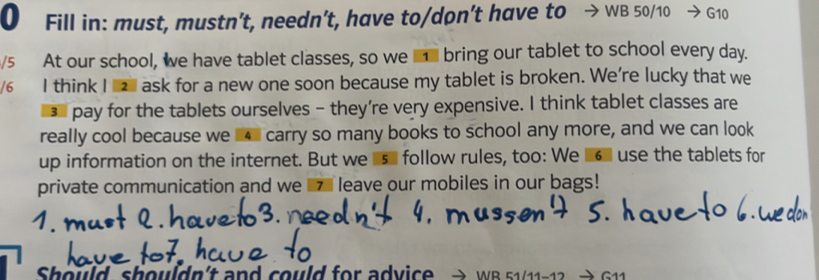 0 Fill in: must, mustn't, needn't, have to/don't have to → WB 50/10 → G10
/5 At our school, we have tablet classes, so we 1 bring our tablet to school every day.
/6 I think I 2 ask for a new one soon because my tablet is broken. We're lucky that we
3 pay for the tablets ourselves – they're very expensive. I think tablet classes are
really cool because we 4 carry so many books to school any more, and we can look
up information on the internet. But we 5 follow rules, too: We 6 use the tablets for
private communication and we 7 leave our mobiles in our bags!
1. must 2. have to 3. needn't 4. mussen't 5. have to 6. we don
have to 7. have to
Should, shouldn't and could for advice → WB 51/11–12 → G11